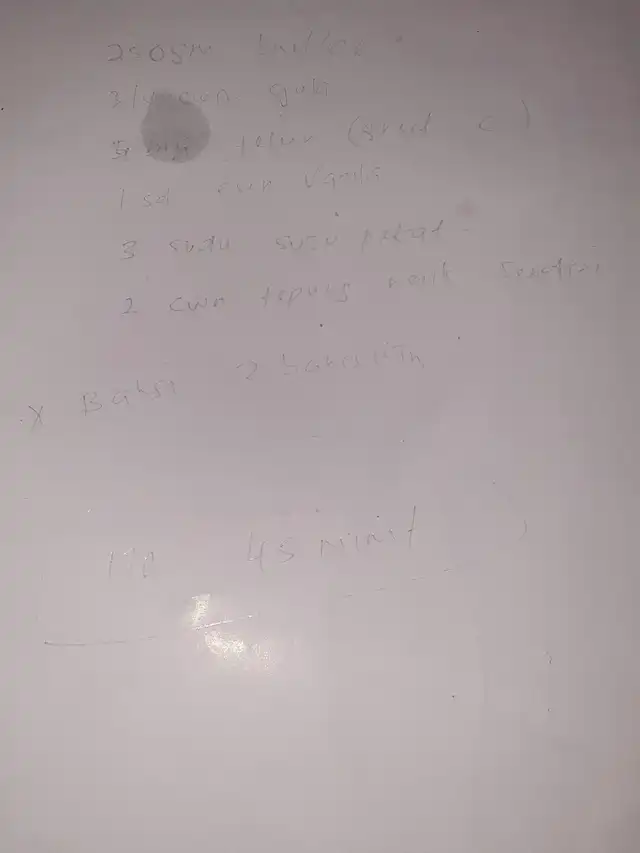 250gm butter
3/4 cwn gula
5 biji telur (gred C)
1 sd esen vanila
3 sudu susu pekat
2 cwn tepung naik sendiri
x Bahgi 2 bahagian
170 45 minit